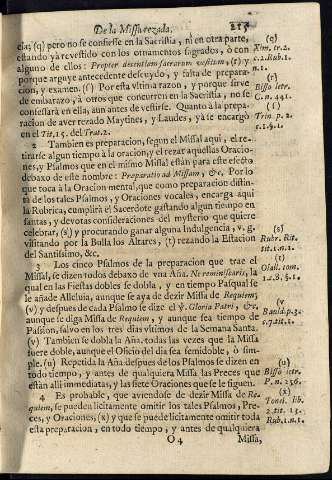 De la Missa rezada. 215
cia; (q) pero no se confiesse en la Sacristia, ni en otra parte,
estando yà revestido con los ornamentos sagrados, ò con
alguno de ellos: Propter decentiam sacrarum vestium, (r) y
porque arguye antecedente descuydo, y falta de prepara-
cion, y examen. (s) Por esta vltima razon, y porque sirve
de embarazo, à otros que concurren en la Sacristia, no se
confessarà en ella, aun antes de vestirse. Quanto à la prepa-
racion de aver rezado Maytines, y Laudes, ya se encargò
en el Tit. 15. del Trat. 2.
2 Tambien es preparacion, segun el Missal aqui, el re-
tirarse algun tiempo à la oracion, y el rezar aquellas Oracio-
nes, y Psalmos que en el mismo Missal estàn para este efecto
debaxo de este nombre: Præparatio ad Missam, &c. Por lo
que toca à la Oracion mental, que como preparacion distin-
ta de los tales Psalmos, y Oraciones vocales, encarga aqui
la Rubrica, cumplirà el Sacerdote gastando algun tiempo en
santas, y devotas consideraciones del mysterio que quiere
celebrar, (s) y procurando ganar alguna Indulgencia, v. g.
visitando por la Bulla los Altares, (t) rezando la Estacion
del Santissimo, &c.
3 Los cinco Psalmos de la preparacion que trae el
Missal, se dizen todos debaxo de vna Aña. Ne reminiscaris, la
qual en las Fiestas dobles se dobla, y en tiempo Pasqual se
le añade Alleluia, aunque se aya de dezir Missa de Requiem;
(v) y despues de cada Psalmo se dize el ℣. Gloria Patri, &c.
aunque se diga Missa de Requiem, y aunque sea tiempo de
Passion, salvo en los tres dias vltimos de la Semana Santa.
(v) Tambien se dobla la Aña. todas las vezes que la Missa
fuere doble, aunque el Oficio del dia sea semidoble, ò sim-
ple. (u) Repetida la Aña despues de los Psalmos se dizen en
todo tiempo, y antes de qualquiera Missa las Preces que
estàn alli immediatas, y las siete Oraciones que se le siguen.
4 Es probable, que aviendose de dezir Missa de Re-
quiem, se pueden licitamente omitir los tales Psalmos, Pre-
ces, y Oraciones, (x) y que se puede licitamente omitir toda
esta preparacion, en todo tiempo, y antes de qualquiera
O 4 Missa,
(q)
(r)
Bisso letr.
(s)
Rubr.
(t)
(v)
(u)
Bisso letr.
P. n. 256.
(x)